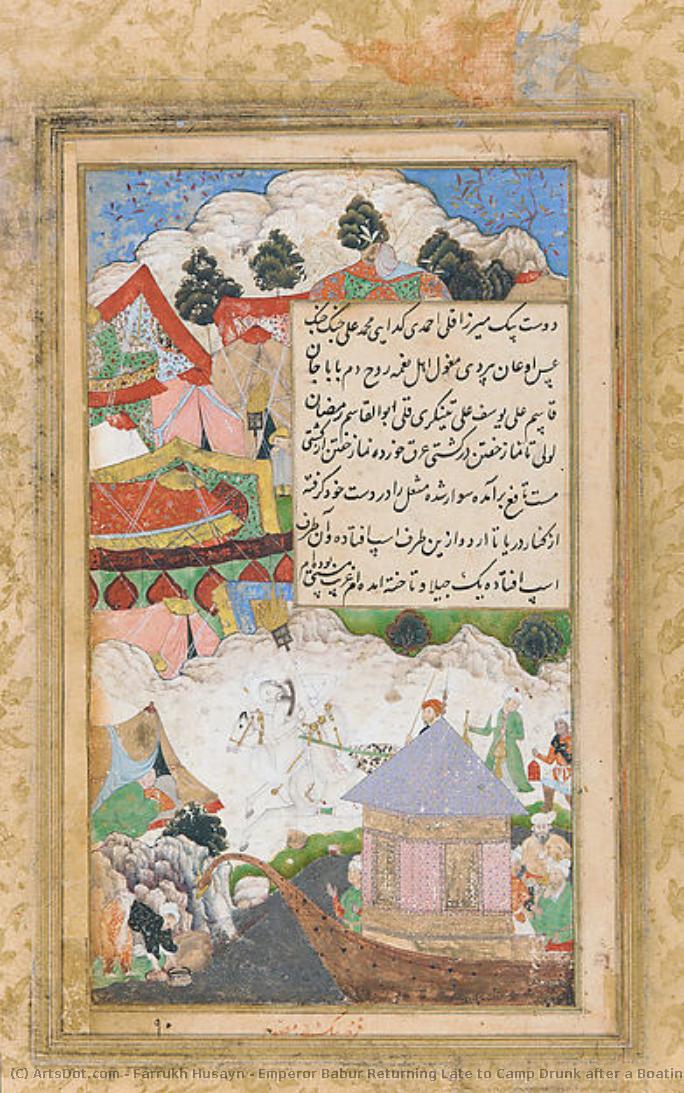 دوست بیک میرزا قلی احمدی کدایی محمد علی جنک جنک
عسس اوغان بردی مغول اهل نغمه روح دم بابا جان
قاسم علی یوسف علی تینکری قلی ابوالقاسم رمضان
لولی تا نماز خفتن در کشتی عرق خورده نماز خفتن از کشتی
مست برآمده سوار شده مشعل را در دست خود گرفته
از کنار دریا تا اردو ازین طرف اسپ افتاده و آن طرف
اسپ افتاده یک جیلاو تاخته آمده ام
۹۰
(C) ArtsDot.com - Farrukh Husayn - Emperor Babur Returning Late to Camp Drunk after a Boatin